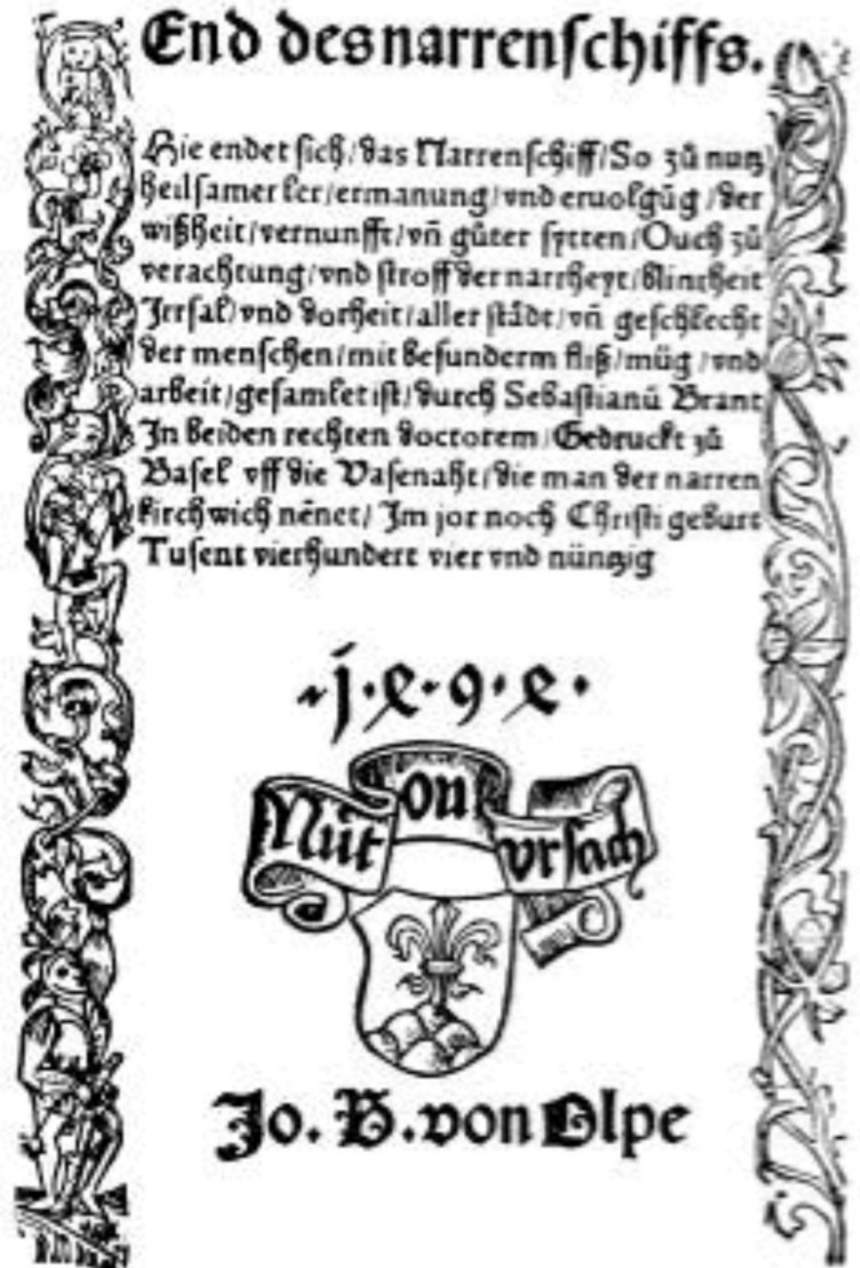 End des narrenſchiffs.
Hie endet ſich / das Narrenſchiff / So zů nutz
heilſamer ler / ermanung / vnd eruolgūg / der
wiſzheit / vernunfft / vñ gůter ſytten / Ouch zů
verachtung / vnd ſtroff der narrheyt / blintheit
Irrſal / vnd dorheit / aller ſtådt / vñ geſchlecht
der menſchen / mit beſunderm fliſz / müg / vnd
arbeit / geſamlet iſt / durch Sebaſtianū Brant
In beiden rechten doctorem / Gedruckt zů
Baſel vff die Vaſenaht / die man der narren
kirchwich nēnet / Im jor noch Chriſti geburt
Tuſent vierhundert vier vnd nüntzig
.j.ꝝ.9.ꝝ.
Nüt on vrſach
Jo. B. von Olpe